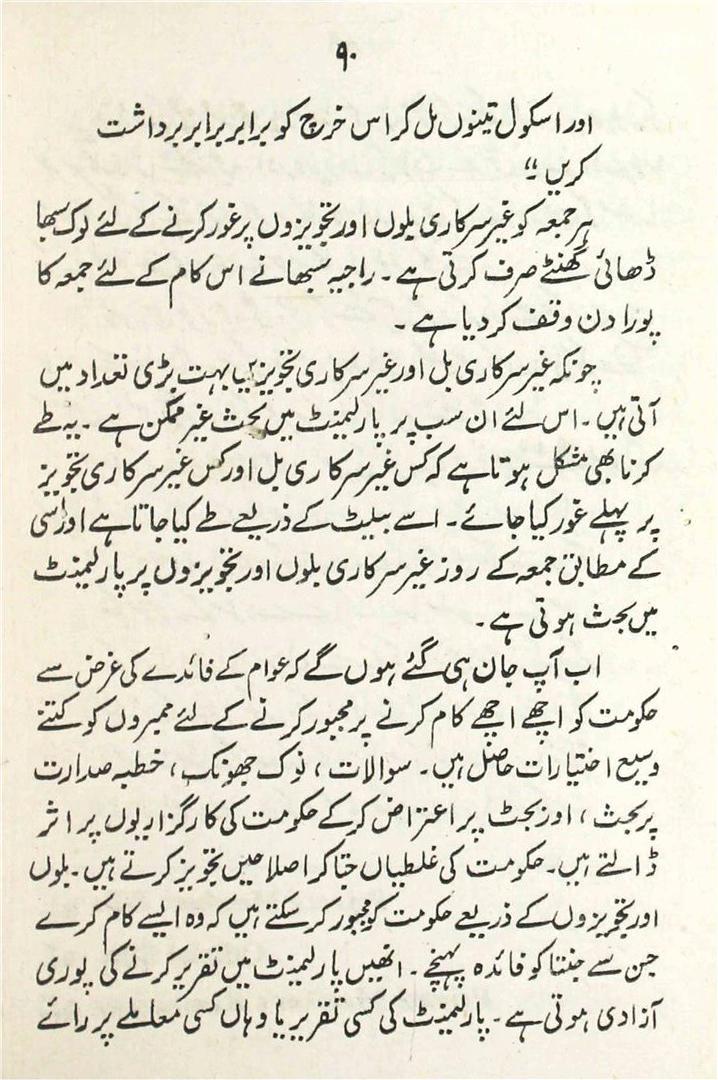 ۹۰
اور اسکول تینوں مل کر اس خرچ کو برابر برابر برداشت
کریں ‘‘
ہر جمعہ کو غیر سرکاری بلوں اور تجویزوں پر غور کرنے کے لئے لوک سبھا
ڈھائی گھنٹے صرف کرتی ہے ۔ راجیہ سبھا نے اس کام کے لئے جمعہ کا
پورا دن وقف کر دیا ہے ۔
چونکہ غیر سرکاری بل اور غیر سرکاری تجویزیں بہت بڑی تعداد میں
آتی ہیں ۔ اس لئے ان سب پر پارلیمنٹ میں بحث غیر ممکن ہے ۔ یہ طے
کرنا بھی مشکل ہوتا ہے کہ کس غیر سرکاری بل اور کس غیر سرکاری تجویز
پر پہلے غور کیا جائے ۔ اسے بیلٹ کے ذریعے طے کیا جاتا ہے اور اسی
کے مطابق جمعہ کے روز غیر سرکاری بلوں اور تجویزوں پر پارلیمنٹ
میں بحث ہوتی ہے ۔
اب آپ جان ہی گئے ہوں گے کہ عوام کے فائدے کی غرض سے
حکومت کو اچھے اچھے کام کرنے پر مجبور کرنے کے لئے ممبروں کو کتنے
وسیع اختیارات حاصل ہیں ۔ سوالات ، نوک جھونک ، خطبہ صدارت
پر بحث ، اور بجٹ پر اعتراض کر کے حکومت کی کارگزاریوں پر اثر
ڈالتے ہیں ۔ حکومت کی غلطیاں جتا کر اصلاحیں تجویز کرتے ہیں ۔ بلوں
اور تجویزوں کے ذریعے حکومت کو مجبور کر سکتے ہیں کہ وہ ایسے کام کرے
جن سے جنتا کو فائدہ پہنچے ۔ انھیں پارلیمنٹ میں تقریر کرنے کی پوری
آزادی ہوتی ہے ۔ پارلیمنٹ کی کسی تقریر یا وہاں کسی معاملے پر رائے